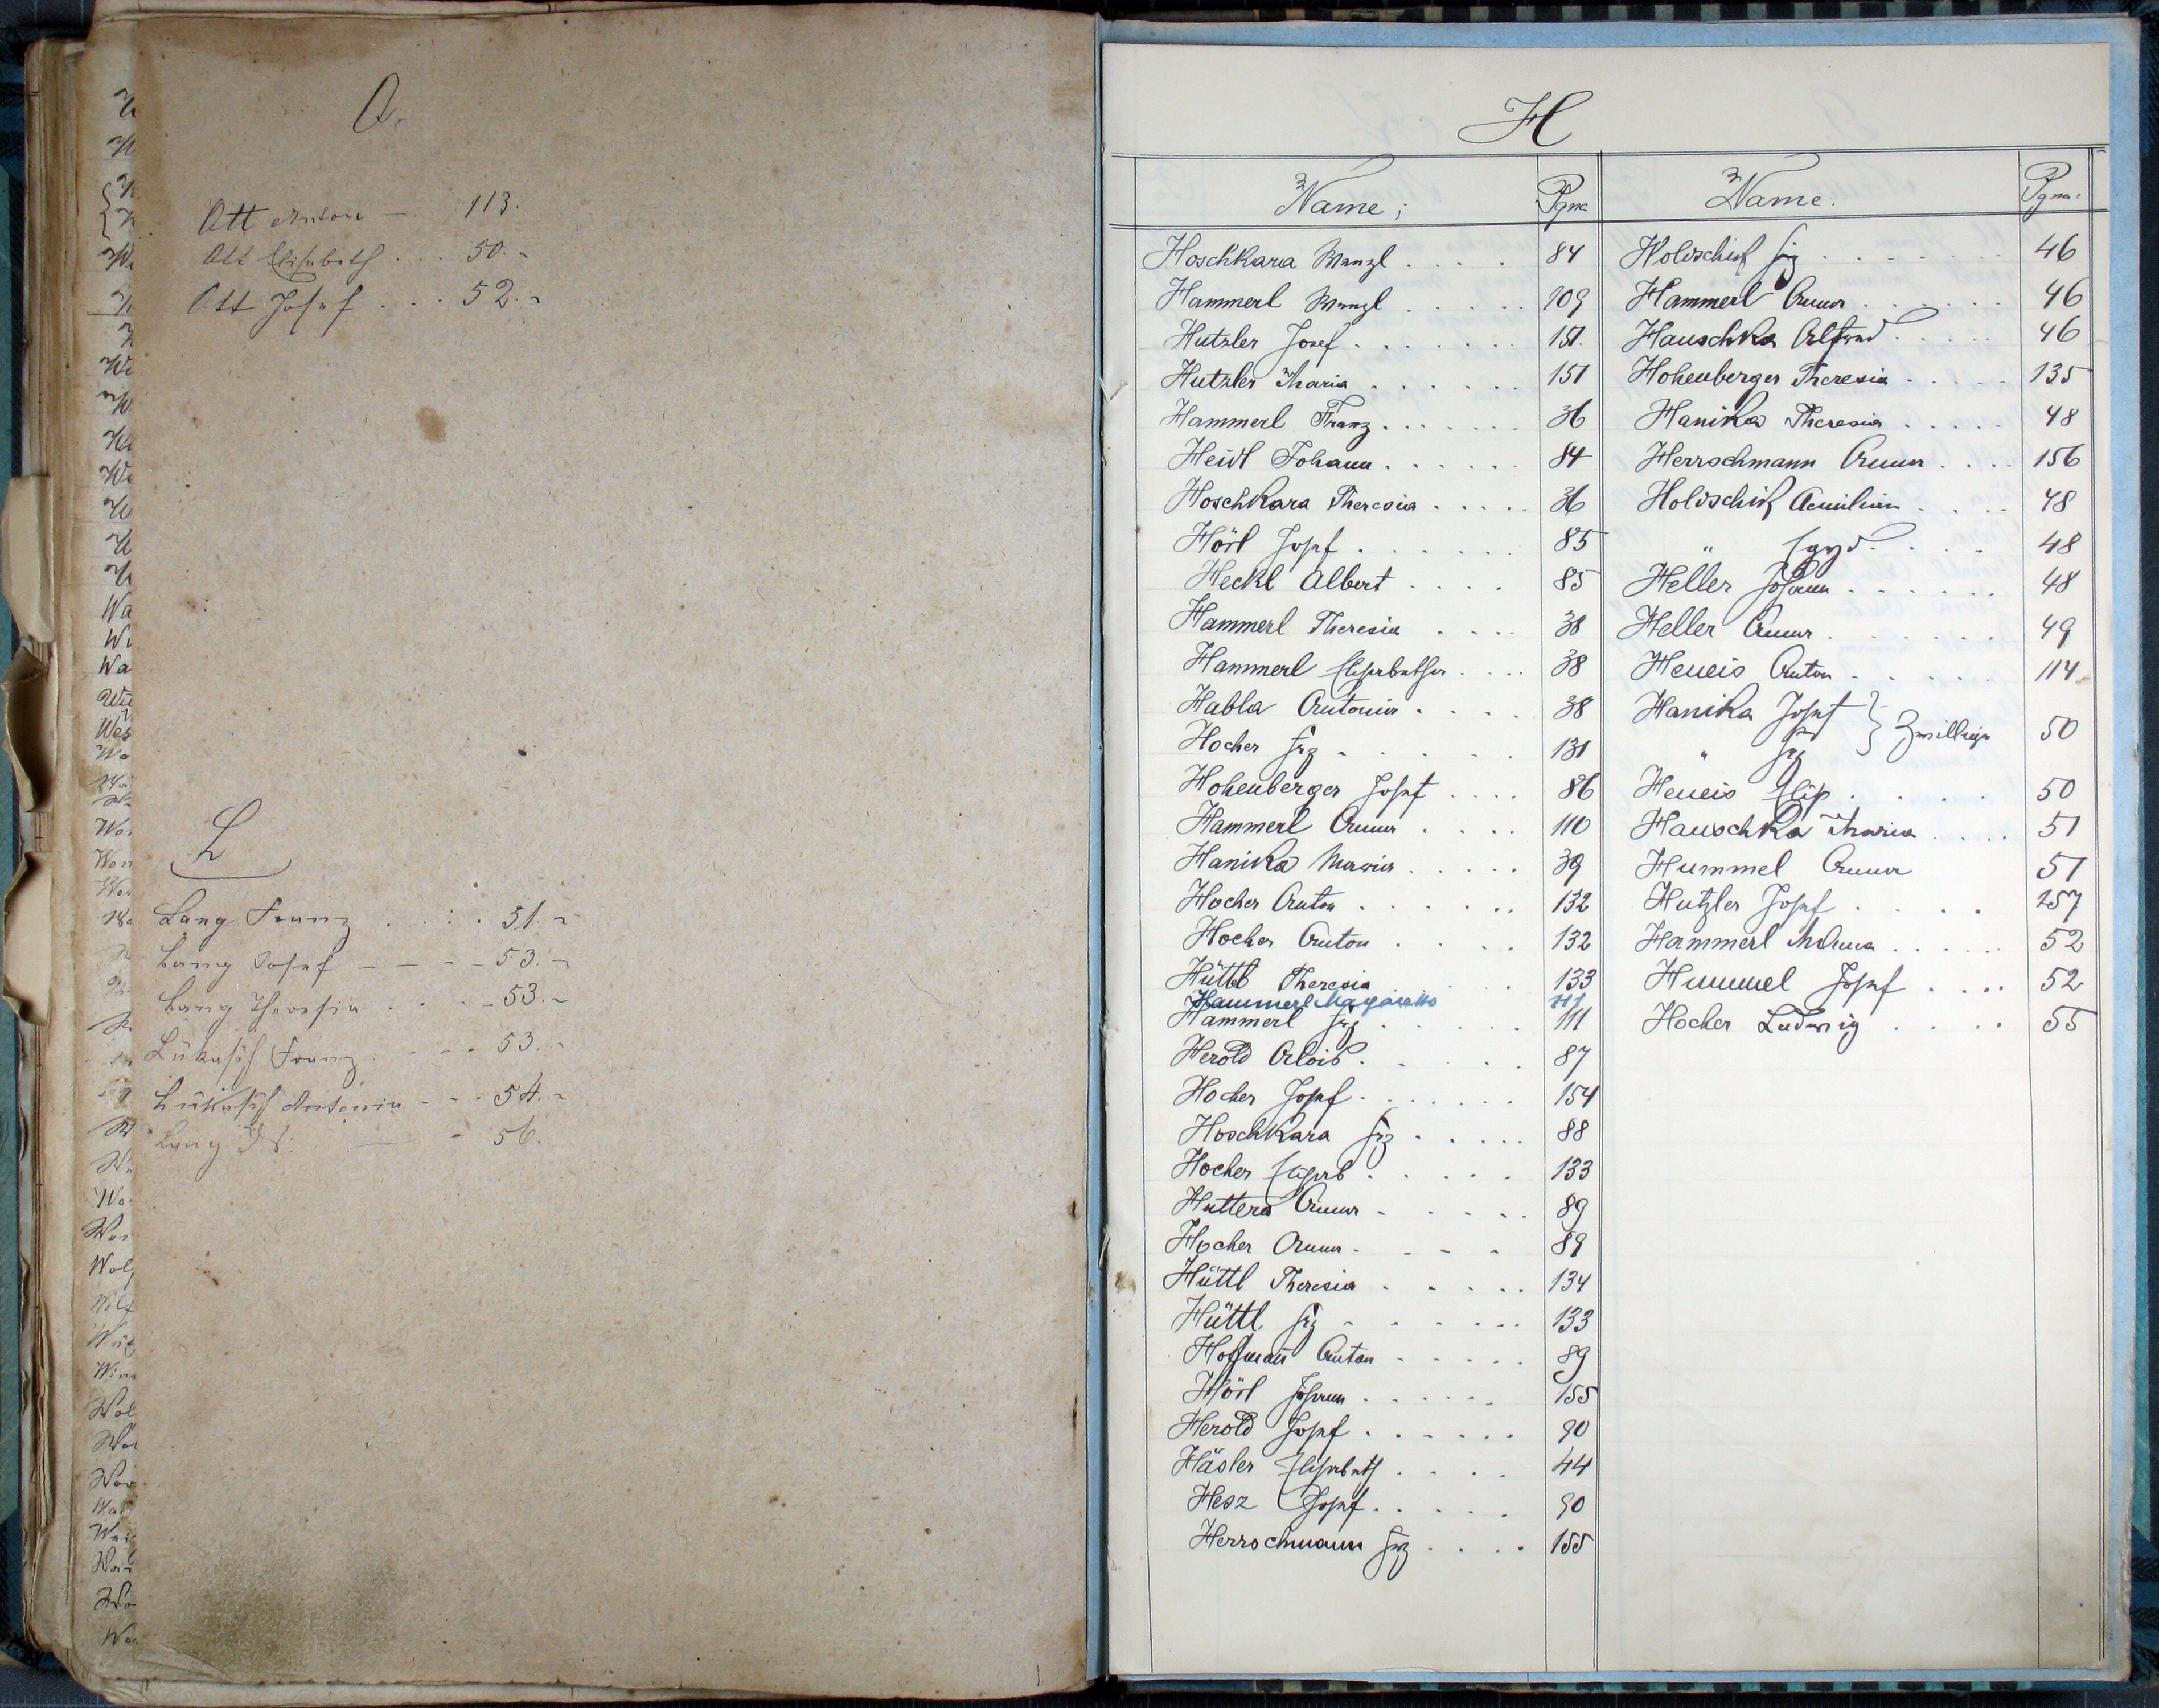 O.
Ott Anton — 113.
Ott Elisabeth . . . 50.-
Ott Josef . . . 52.-
L
Lang Franz . . . 51.-
Lang Josef - - - 53.-
Lang Theresia . . - 53.-
Lukasch Franz . - - 53.-
Lukasch Antonia - - - 54.-
Lang - 56.
H
Name; Pgna
Hoschkara Wenzl . . . . 84
Hammerl Wenzl . . . . . 109
Hutzler Josef . . . . . . . 151.
Hutzler Maria . . . . . . 151
Hammerl Franz . . . . . . . 36
Heidl Johann . . . . . . 84
Hoschkara Theresia . . . . . 36
Hörl Josef . . . . . . 85
Heckl Albert . . . . 85
Hammerl Theresia . . . . 38
Hammerl Elisabetha . . . . 38
Habla Antonia . . . . 38
Hocher Frz . . . . . 131
Hohenberger Josef . . . . 86
Hammerl Anna . . . . 110
Hanika Maria . . . . . 39
Hocher Anton . . . . . . 132
Hocher Anton . . . . 132
Hüttl Theresia . . 133
Hammerl Margareta 111
Hammerl Frz . . . . . 111
Herold Alois . . . . . 87
Hocher Josef . . . . . . . 154
Hoschkara Frz . . . . . 88
Hocher Elisab . . . . . 133
Huttera Anna - . . . . 89
Hocher Anna . - - - 89
Hüttl Theresia . . . . . 134
Hüttl Frz - - - . . . 133
Hofmañ Anton - - - . . 89
Hörl Johann . . . . . . 155
Herold Josef . . . . . . 90
Häsler Elisabeth . . . . 44
Hesz Josef . . . . . 90
Herrschmann Frz . . . . 155
Name. Pgna.
Holdschik Frz . . . . . . . 46
Hammerl Anna . . . . . . 46
Hauschka Alfred . . . . . 46
Hohenberger Theresia . . . . . 135
Hanika Theresia . . . . . 48
Herrschmann Anna . . . . 156
Holdschik Aemilian . . . . 48
" Egyd . . . . 48
Heller Johann . . . . . . 48
Heller Anna . . . . . . 49
Heneis Anton . . . . . 114
Hanika Josef } Zwillinge 50
" Frz
Heneis Elis . . . . . 50
Hauschka Maria . . . . 51
Hummel Anna 51
Hutzler Josef . . . . 157
Hammerl . . . . . 52
Hummel Josef . . . . 52
Hocher Ludwig . . . . 55